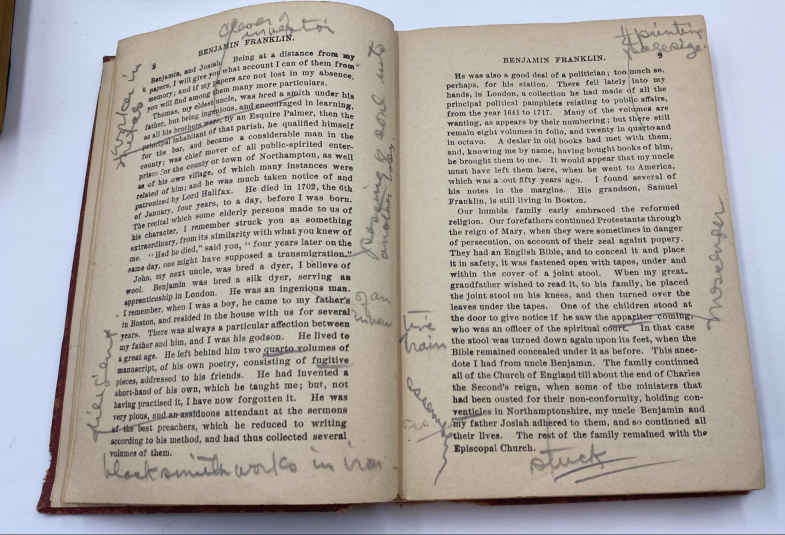 clever
inventor
8
BENJAMIN FRANKLIN.
Benjamin, and Josiah. Being at a distance from my
papers, I will give you what account I can of them from
memory; and if my papers are not lost in my absence,
you will find among them many more particulars.
Thomas, my eldest uncle, was bred a smith under his
father, but being ingenious, and encouraged in learning,
as all his brothers were, by an Esquire Palmer, then the
principal inhabitant of that parish, he qualified himself
for the bar, and became a considerable man in the
county; was chief mover of all public-spirited enter-
prises for the county or town of Northampton, as well
as of his own village, of which many instances were
related of him; and he was much taken notice of and
patronized by Lord Halifax. He died in 1702, the 6th
of January, four years, to a day, before I was born.
The recital which some elderly persons made to us of
his character, I remember struck you as something
extraordinary, from its similarity with what you knew of
me. "Had he died," said you, "four years later on the
same day, one might have supposed a transmigration."
John, my next uncle, was bred a dyer, I believe of
wool. Benjamin was bred a silk dyer, serving an
apprenticeship in London. He was an ingenious man.
I remember, when I was a boy, he came to my father's
in Boston, and resided in the house with us for several
years. There was always a particular affection between
my father and him, and I was his godson. He lived to
a great age. He left behind him two quarto volumes of
manuscript, of his own poetry, consisting of fugitive
pieces, addressed to his friends. He had invented a
short-hand of his own, which he taught me; but, not
having practised it, I have now forgotten it. He was
very pious, and an assiduous attendant at the sermons
of the best preachers, which he reduced to writing
according to his method, and had thus collected several
volumes of them.
blacksmith works in iron
worker in
passing of soul into
another
printing
BENJAMIN FRANKLIN.
9
He was also a good deal of a politician; too much so,
perhaps, for his station. There fell lately into my
hands, in London, a collection he had made of all the
principal political pamphlets relating to public affairs,
from the year 1641 to 1717. Many of the volumes are
wanting, as appears by their numbering; but there still
remain eight volumes in folio, and twenty in quarto and
in octavo. A dealer in old books had met with them,
and, knowing me by name, having bought books of him,
he brought them to me. It would appear that my uncle
must have left them here, when he went to America,
which was about fifty years ago. I found several of
his notes in the margins. His grandson, Samuel
Franklin, is still living in Boston.
Our humble family early embraced the reformed
religion. Our forefathers continued Protestants through
the reign of Mary, when they were sometimes in danger
of persecution, on account of their zeal against popery.
They had an English Bible, and to conceal it and place
it in safety, it was fastened open with tapes, under and
within the cover of a joint stool. When my great-
grandfather wished to read it, to his family, he placed
the joint stool on his knees, and then turned over the
leaves under the tapes. One of the children stood at
the door to give notice if he saw the apparitor coming,
who was an officer of the spiritual court. In that case
the stool was turned down again upon its feet, when the
Bible remained concealed under it as before. This anec-
dote I had from uncle Benjamin. The family continued
all of the Church of England till about the end of Charles
the Second's reign, when some of the ministers that
had been ousted for their non-conformity, holding con-
venticles in Northamptonshire, my uncle Benjamin and
my father Josiah adhered to them, and so continued all
their lives. The rest of the family remained with the
Episcopal Church.
stuck
messenger